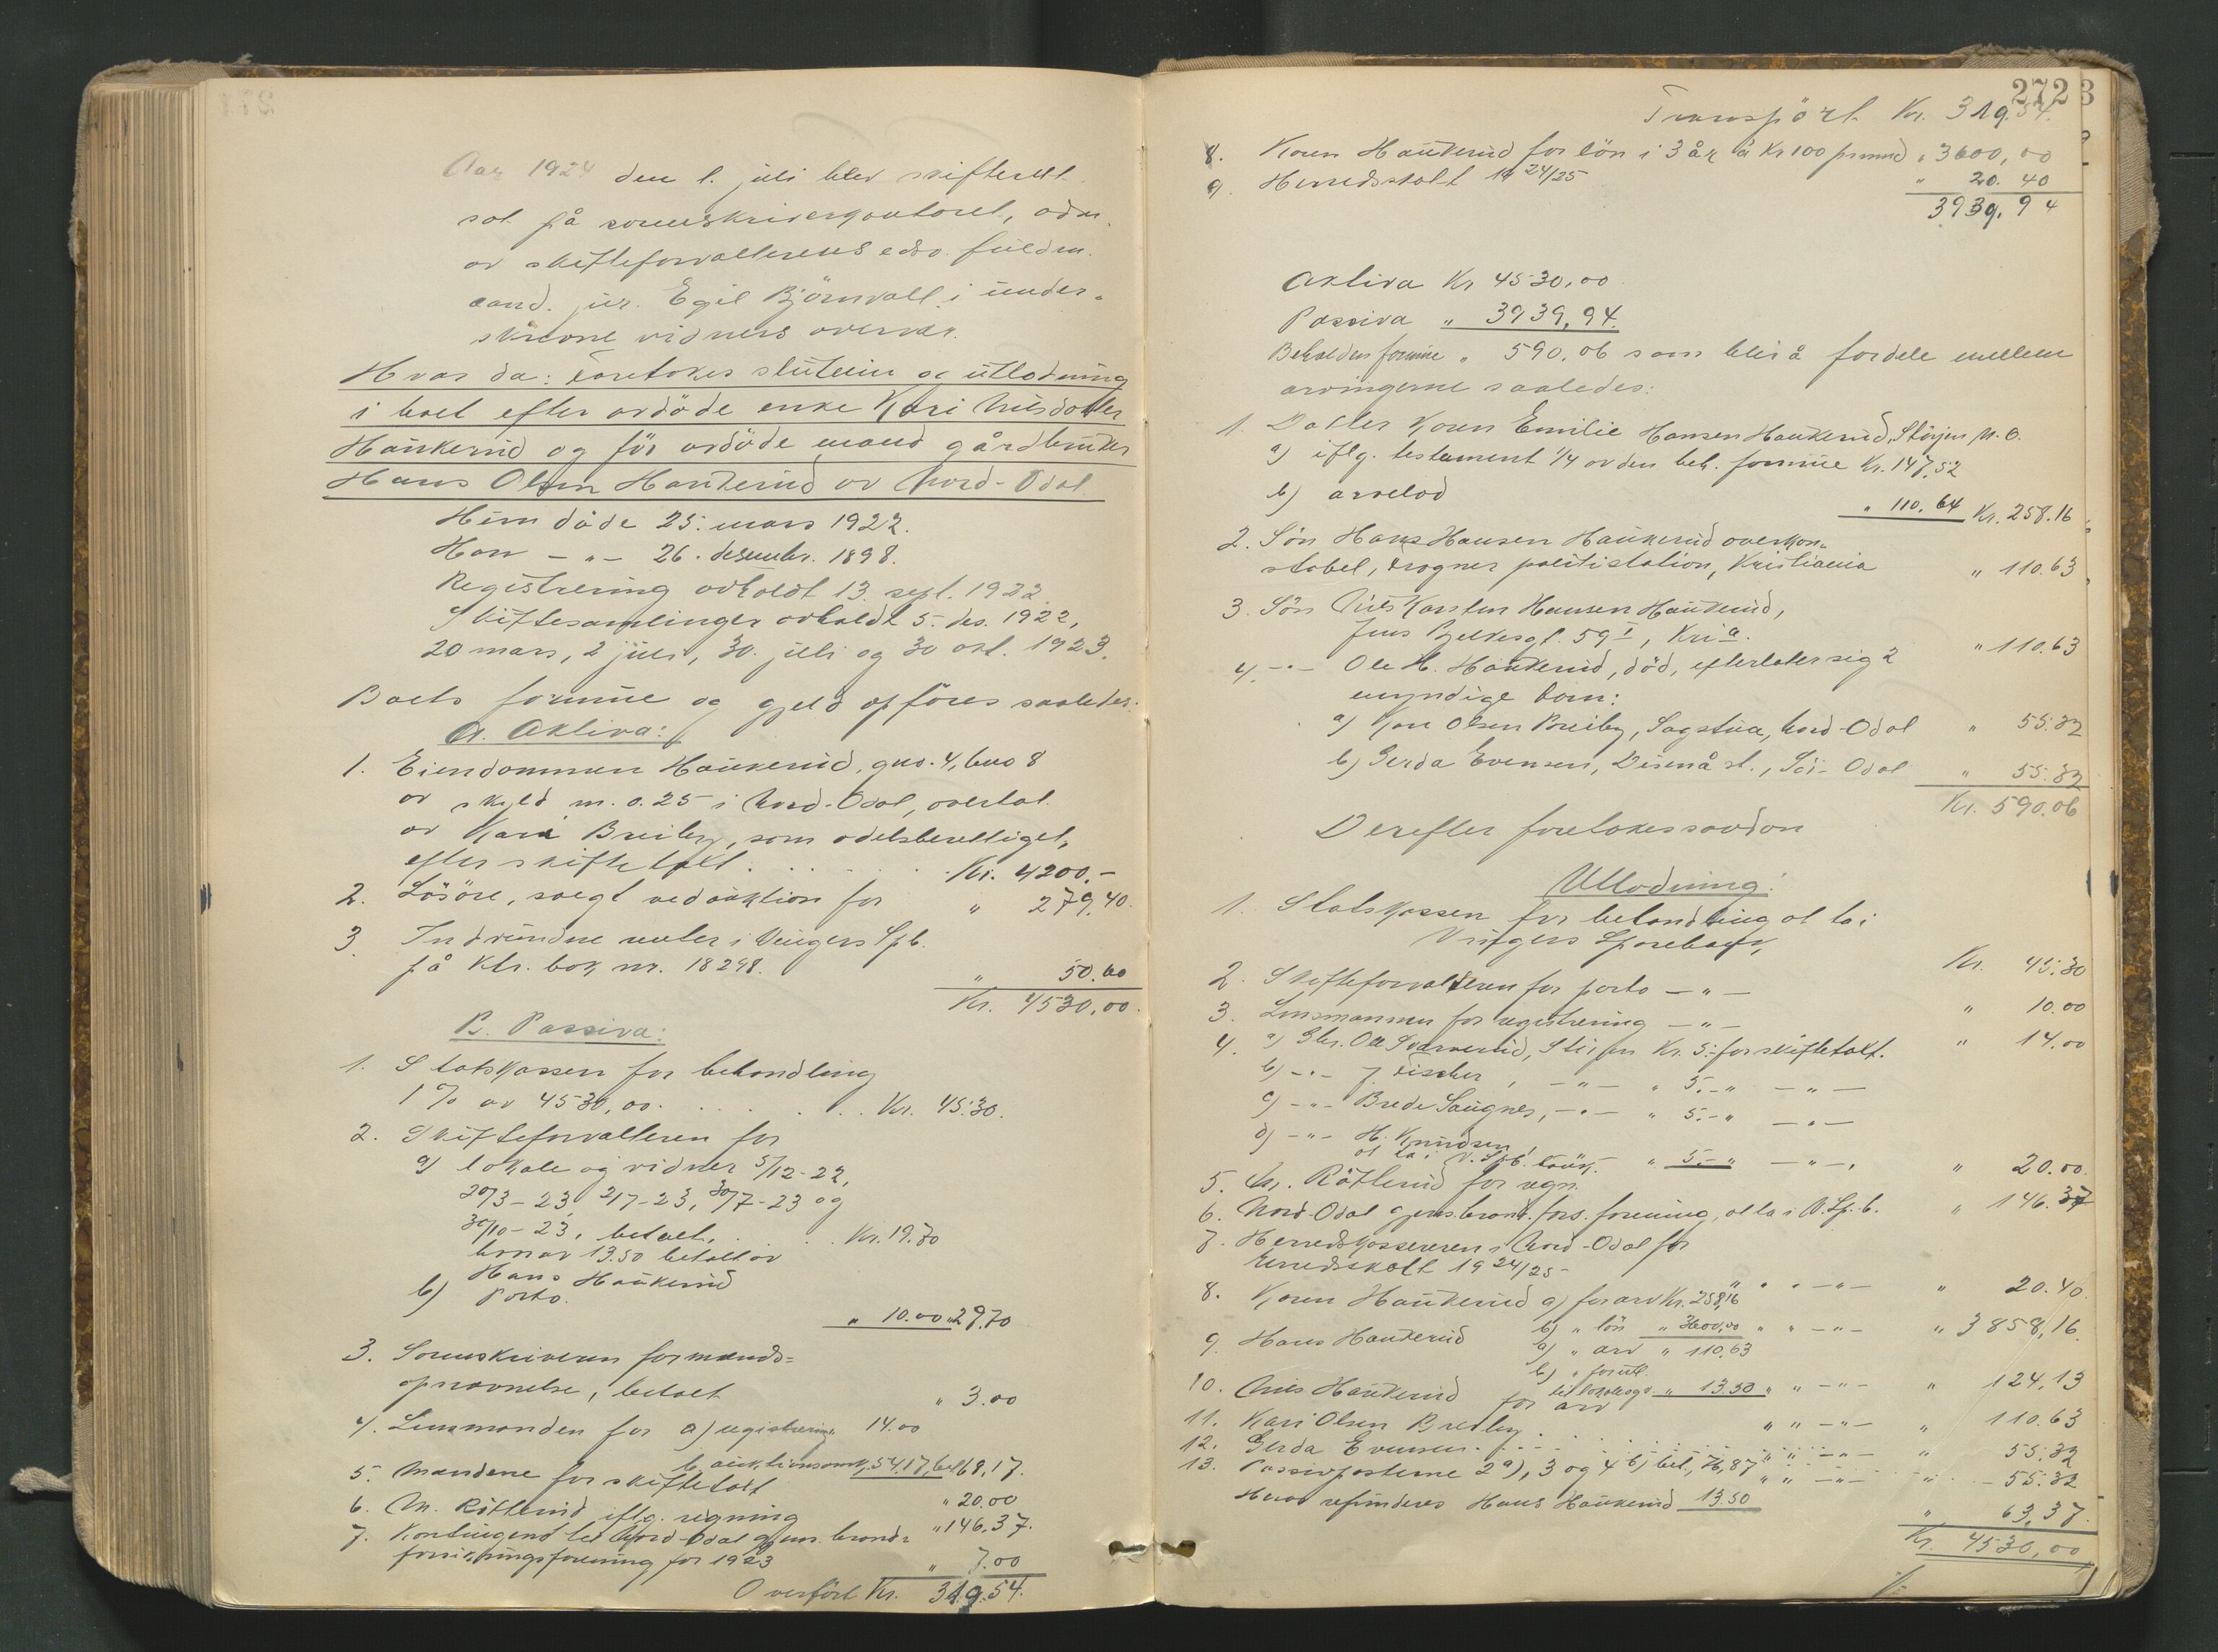 Aar 1924 den 1. juli blev skifterett
sat på sorenskriverkontoret, adm.
av skifteforvalterens edsv. fuldm.
cand. jur. Egil Björnvall i under-
skrevne vidners overvær.
Hvor da: foretokes slutning og utlodning
i boet efter avdöde enke Kari Nilsdatter
Haukerud og för avdöde mand gårdbruker
Hans Olsen Haukerud av Nord-Odal.
Hun döde 25. mars 1922.
Han - " - 26. desembr. 1898.
Registrering avholdt 13. sept. 1922
Skiftesamlinger avholdt 5. des. 1922,
20 mars, 2 juli, 30. juli og 30 okt. 1923.
Boets formue og gjeld opföres saaledes:
A. Aktiva:
1. Eiendommen Haukerud, gno. 4, bno 8
av skyld m. 0.25 i Nord-Odal, overtat
av Kari Breiby, som odelsberettiget,
efter skiftetakt . . . . . . Kr. 4200.-
2. Lösöre, solgt ved auktion for " 279,40.
3 Indvundne renter i Vingers Spb.
på ktr. bok nr. 18298. " 50.60
Kr. 4530,00.
B. Passiva:
1. Statskassen for behandling
1% av 4530,00. . . . . . . Kr. 45.30.
2. Skifteforvalteren for
a) lokale og vidner 5/12-22,
20/3-23 2/7-23, 30/7-23 og
30/10-23, betalt, . . . Kr. 19.70
hvorav 13.50 betalt av
Hans Haukerud
b) Porto. " 10.00 " 29.70
3. Sorenskriveren for mands-
opnævnelse, betalt " 3.00
4. Lensmanden for a) registrering 14.00
b, auktionsomk, 54.17, bet. 68,17.
5. Mændene for skiftetakt " 20.00
6. M. Rötterud iflg. regning " 146.37.
7. Kontingent til Nord-Odal gjens. brand-
forsikringsforening for 1923 " 7.00
Overfört Kr. 319.54.
272
3
Transport Kr. 319.54.
8. Karen Haukerud for lön i 3 år à Kr 100 pr mnd " 3600,00
9. Herredsskatt 19 24/25 " 20. 40
3939,94
Aktiva Kr 4530,00
Passiva " 3939,94.
Beholden formue " 590,06 som blir å fordele mellem
arvingerne saaledes:
1. Datter Karen Emilie Hansen Haukerud, Störjen N. O.
a) iflg. testament 1/4 av den beh. formue Kr. 147,52
b) arvelod " 110,64 Kr. 258.16
2. Sön Hans Hansen Haukerud overkon-
stabel, Frogner politistation, Kristiania " 110.63
3. Sön Nils Karsten Hansen Haukerud,
Jens Bjelkesgt. 59 I, Kria. " 110.63
4. - " - Ole H. Haukerud, död, efterlater sig 2
umyndige barn:
a) Kari Olsen Breiby, Sagstua, Nord-Odal " 55.32
b) Gerda Evensen, Disenå st., Sör-Odal " 55.32
Kr. 590.06
Derefter foretokes saadan
Utlodning:
1. Statskassen for behandling at ta i
Vingers Sparebank, Kr. 45.30
2. Skifteforvalteren for porto - " - " 10.00
3. Lensmannen for registrering - " - " 14.00
4. a) Gbr. Ole Skarverud, Stirjen Kr. 5.- for skiftetakt.
b) - " - J. Fischer, - " - " 5.- " - " -
c) - " - Brede Saugnes, - " - " 5.- " - " -
d) - " - H. Knudsen " 5.- " - " -, " 20.00.
5. M. Rötterud for regn. at ta i V. Spb. " 146.37
6. Nord-Odal gjens. brand. fors. forening, at ta i V. Sp. b.
7. Herredskassereren i Nord-Odal for
herredsskatt 19 24/25 " " - " - " 20.40.
8. Karen Haukerud a) for arv Kr. 258,16
b) " lön " 3600,00 " " - " - " 3858,16.
9. Hans Haukerud a) " arv " 110,63
b) " forutl.
til lokale og v. " 13.50 " " - " - " 124,13
10. Nils Haukerud for arv " " - " - " 110.63
11. Kari Olsen Breiby . . . . " " - " - " 55.32
12. Gerda Evensen . . . . " " - " - " 55.32
13. Passivposterne 2a), 3 og 4 b) bet., 76,87
Herav refunderes Hans Haukerud 13.50 " 63,37.
Kr. 4530,00